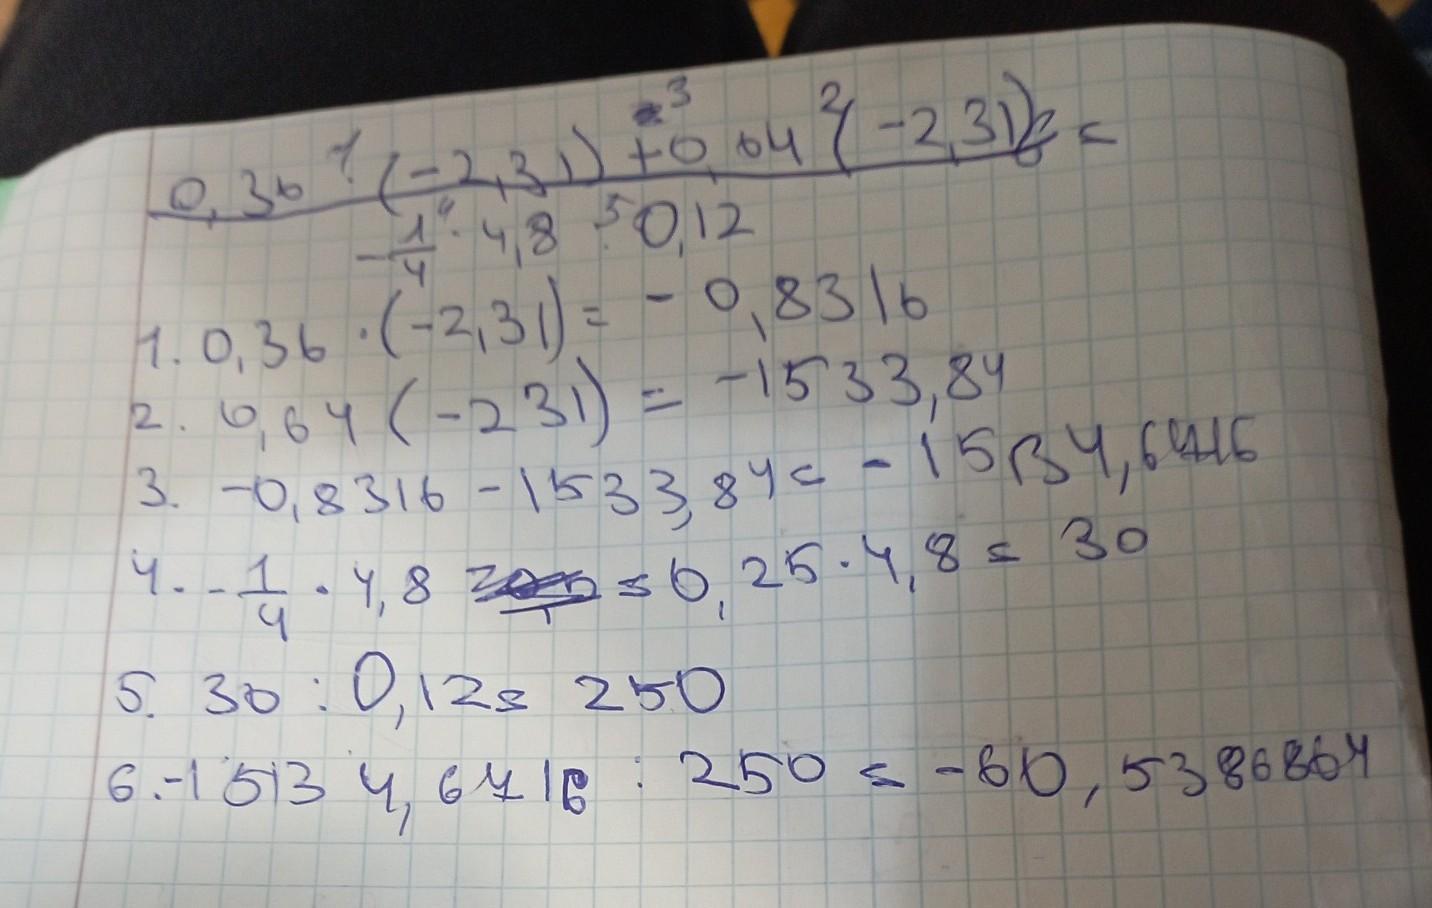 0,36 · (-2,31) + 0,64 (-2,31) =
1 3 2 6
-1/4 · 4,8 : 0,12
4 5
1. 0,36 · (-2,31) = - 0,8316
2. 0,64 (-231) = -1533,84
3. -0,8316 - 1533,84 = - 1534,6716
4. -1/4 · 4,8 = 0,25 · 4,8 = 30
5. 30 : 0,12 = 250
6. -1534,6716 : 250 = -60,5386864